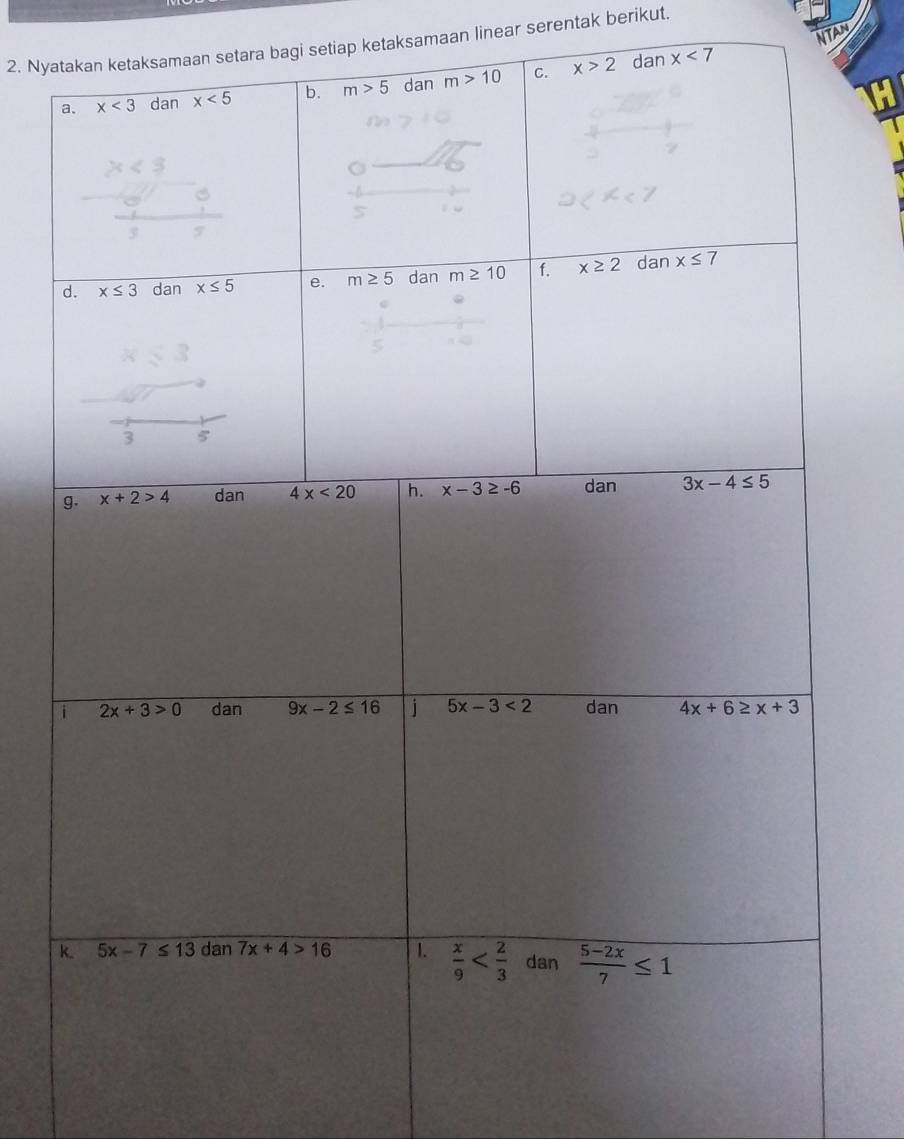 2. Nyatakan ketaksamaan setara bagi setiap ketaksamaan linear serentak berikut.
NTAN
AH
a. x < 3 dan x < 5
b. m > 5 dan m > 10
c. x > 2 dan x < 7
x < 3
3 5
m > 10
5 10
2 7
2 < x < 7
d. x ≤ 3 dan x ≤ 5
e. m ≥ 5 dan m ≥ 10
f. x ≥ 2 dan x ≤ 7
x ≤ 3
3 5
5 10
g. x + 2 > 4 dan 4x < 20
h. x − 3 ≥ -6 dan 3x − 4 ≤ 5
i 2x + 3 > 0 dan 9x − 2 ≤ 16
j 5x − 3 < 2 dan 4x + 6 ≥ x + 3
k. 5x − 7 ≤ 13 dan 7x + 4 > 16
l. x/9 < 2/3 dan (5−2x)/7 ≤ 1